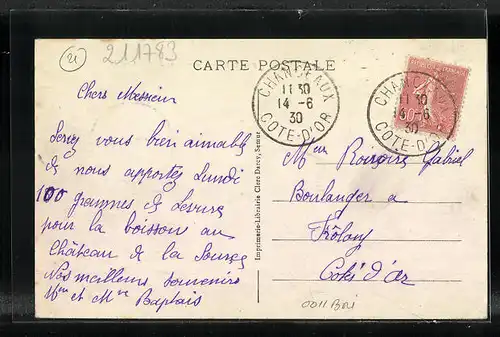 21
211783
CARTE POSTALE
CHANCEAUX
11 30
14 - 6
30
COTE-D'OR
CHANCEAUX
11 30
14 - 6
30
COTE-D'OR
Chers Messieur
Serez vous bien aimable
de nous apportez Lundi
100 grammes de Levure
pour la boisson au
Château de la Source
Nos meilleurs souvenirs
Mr et Mme Baptais
Imprimerie-Librairie Cière Darcy, Semur
Mrs Gabriel
Boulanger a
Côte d'Or
0011 Boi